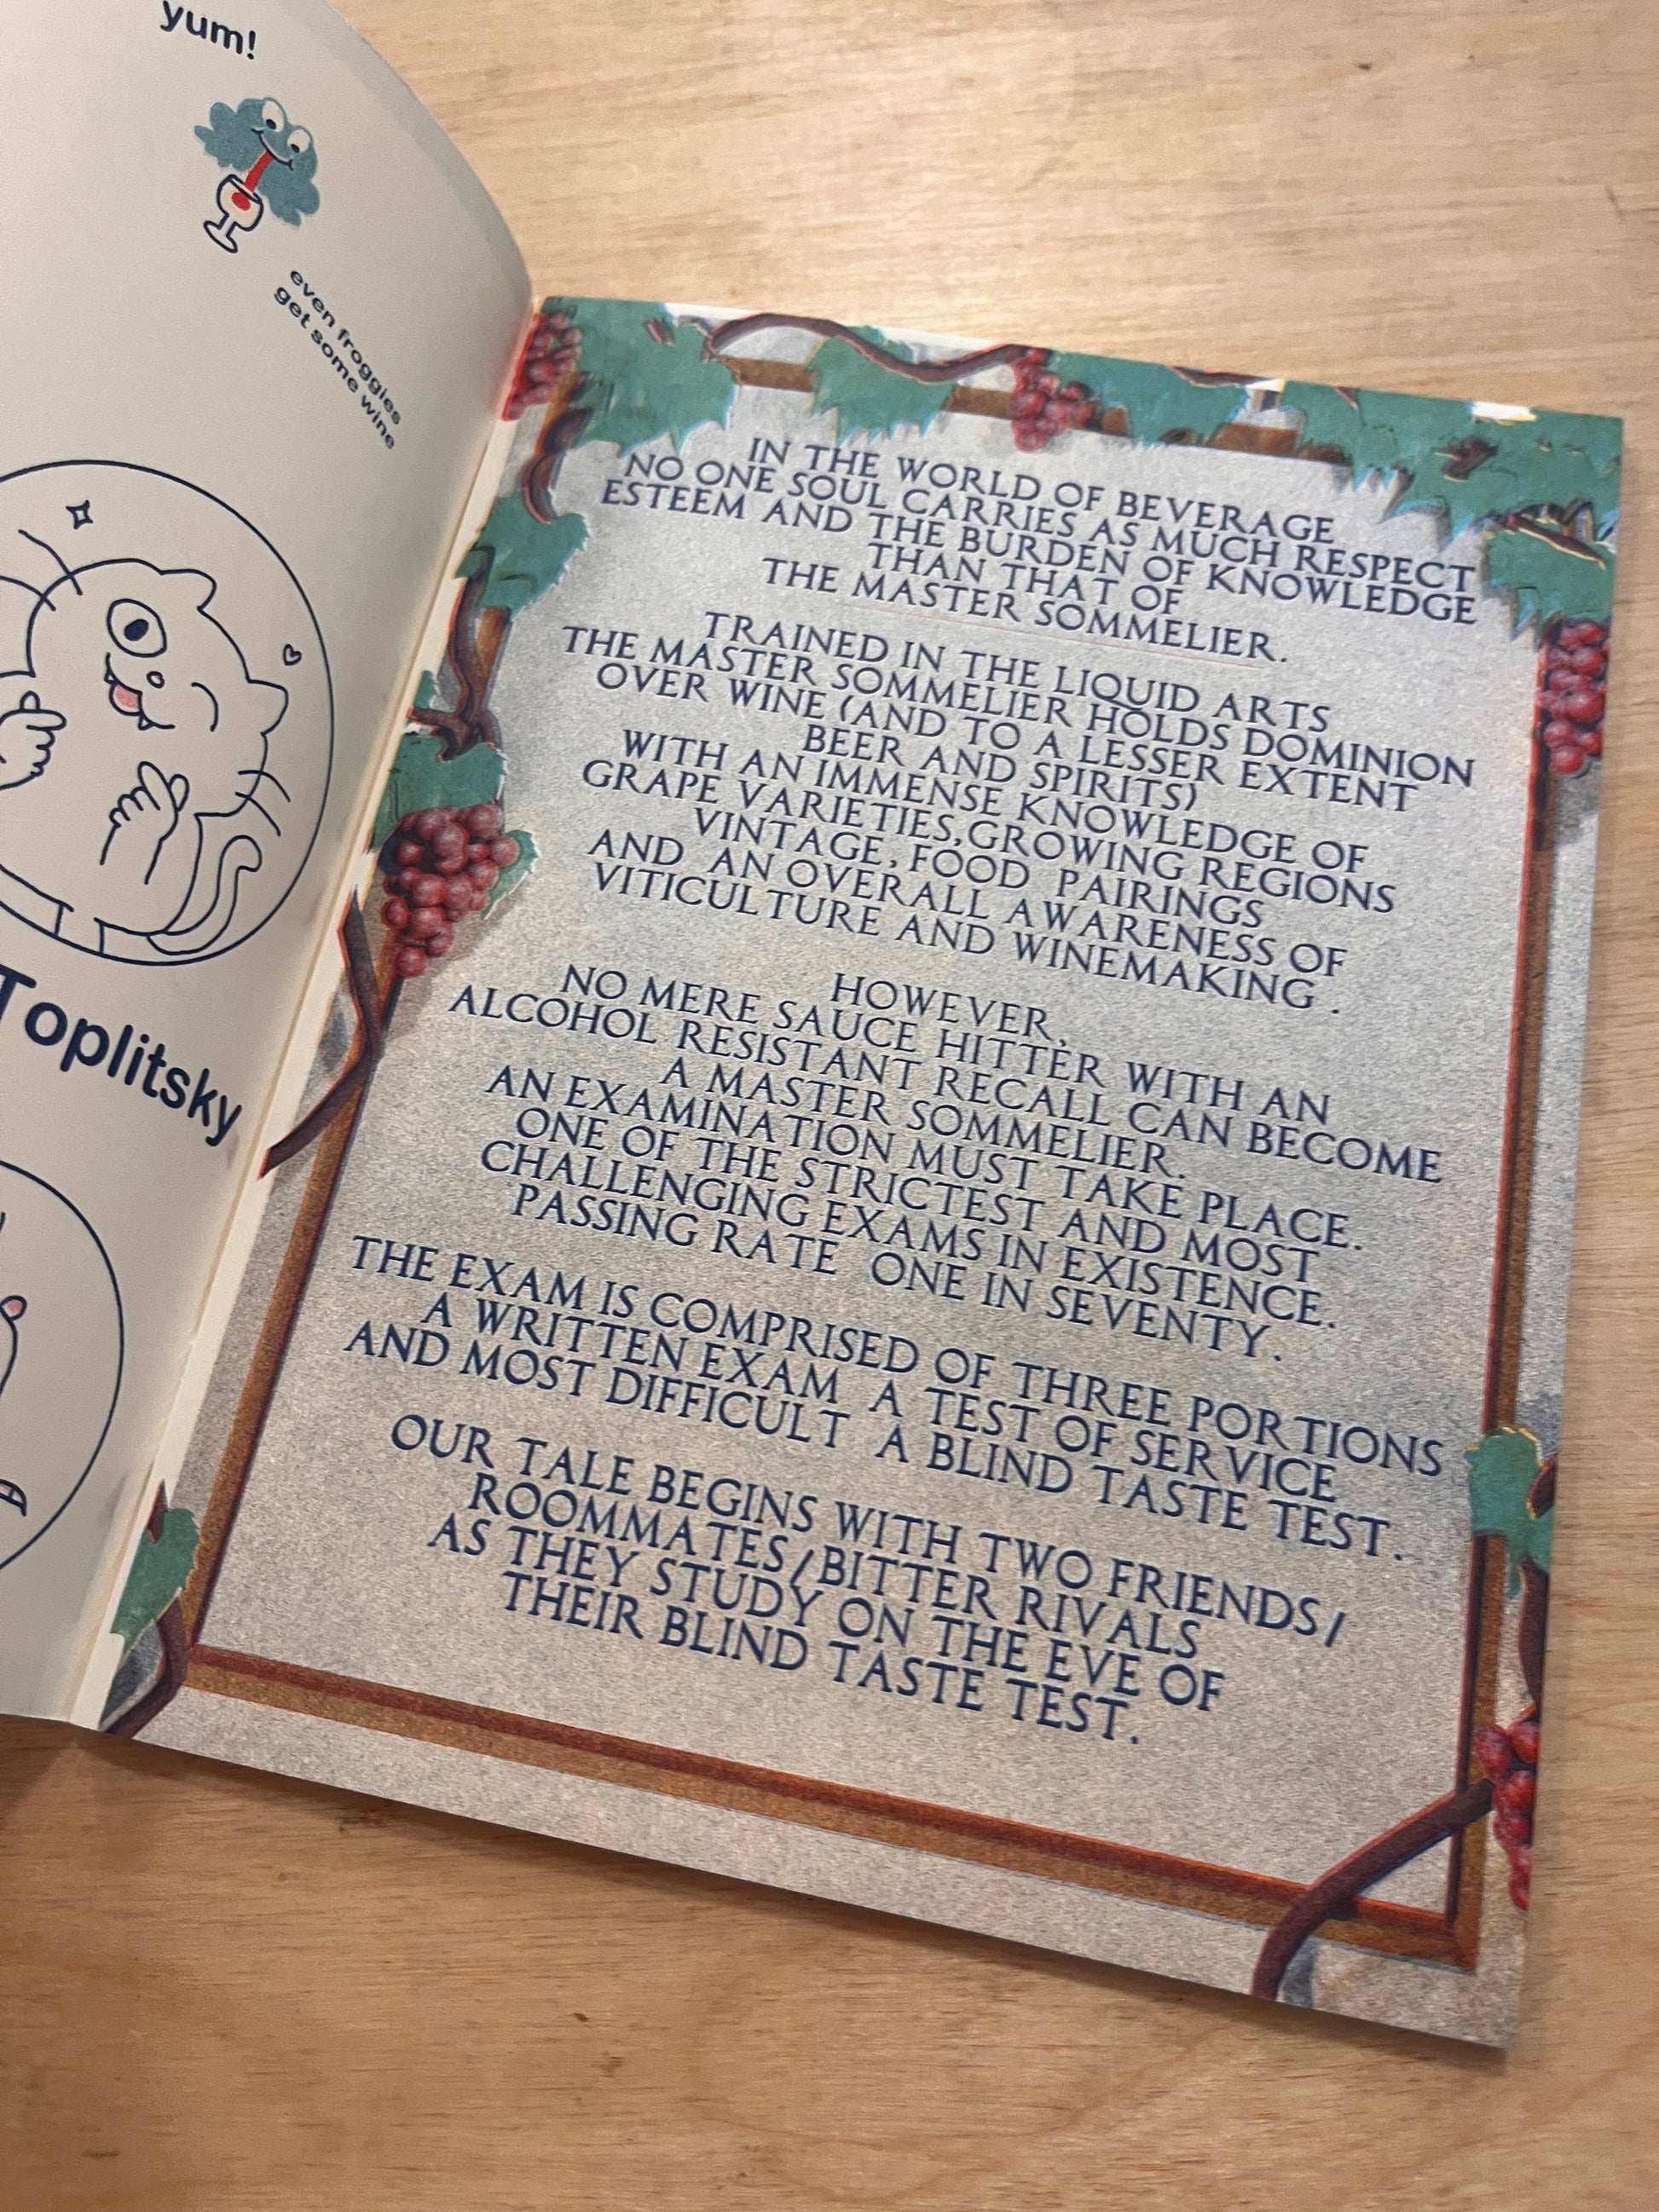 yum!
even froggies
get some wine
Toplitsky
IN THE WORLD OF BEVERAGE
NO ONE SOUL CARRIES AS MUCH RESPECT
ESTEEM AND THE BURDEN OF KNOWLEDGE
THAN THAT OF
THE MASTER SOMMELIER.
TRAINED IN THE LIQUID ARTS
THE MASTER SOMMELIER HOLDS DOMINION
OVER WINE (AND TO A LESSER EXTENT
BEER AND SPIRITS)
WITH AN IMMENSE KNOWLEDGE OF
GRAPE VARIETIES, GROWING REGIONS
VINTAGE, FOOD PAIRINGS
AND AN OVERALL AWARENESS OF
VITICULTURE AND WINEMAKING.
HOWEVER,
NO MERE SAUCE HITTER WITH AN
ALCOHOL RESISTANT RECALL CAN BECOME
A MASTER SOMMELIER.
AN EXAMINATION MUST TAKE PLACE.
ONE OF THE STRICTEST AND MOST
CHALLENGING EXAMS IN EXISTENCE.
PASSING RATE ONE IN SEVENTY.
THE EXAM IS COMPRISED OF THREE PORTIONS
A WRITTEN EXAM A TEST OF SERVICE
AND MOST DIFFICULT A BLIND TASTE TEST.
OUR TALE BEGINS WITH TWO FRIENDS/
ROOMMATES/BITTER RIVALS
AS THEY STUDY ON THE EVE OF
THEIR BLIND TASTE TEST.